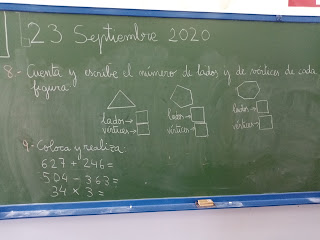 23 Septiembre 2020
8- Cuenta y escribe el número de lados y de vértices de cada
figura
lados→ lados→ lados→
vértices→ vértices→ vértices→
9- Coloca y realiza:
627 + 246 =
504 - 363 =
34 × 3 =